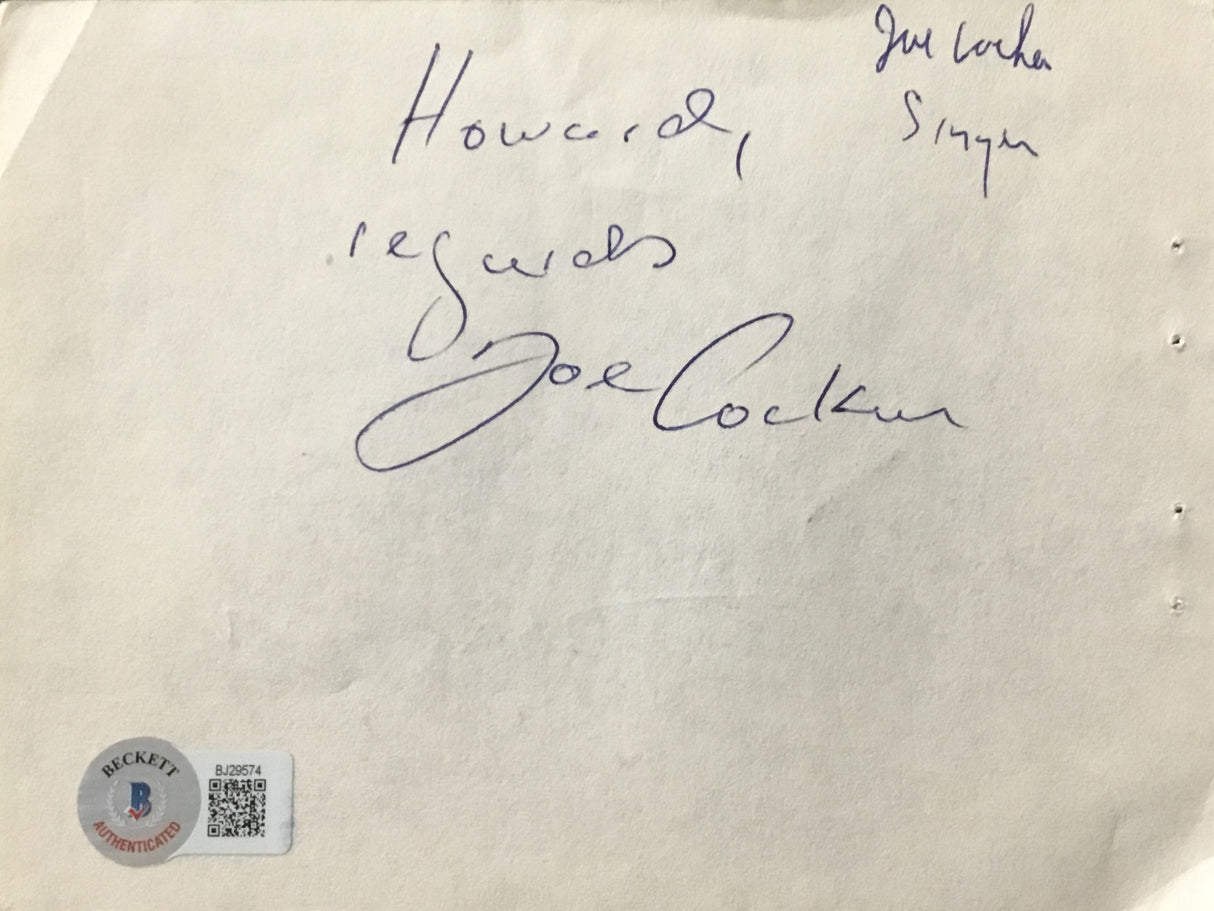 Joe Cocker
Singer
Howard,
regards
Joe Cocker
BECKETT
B
AUTHENTICATED
BJ29574